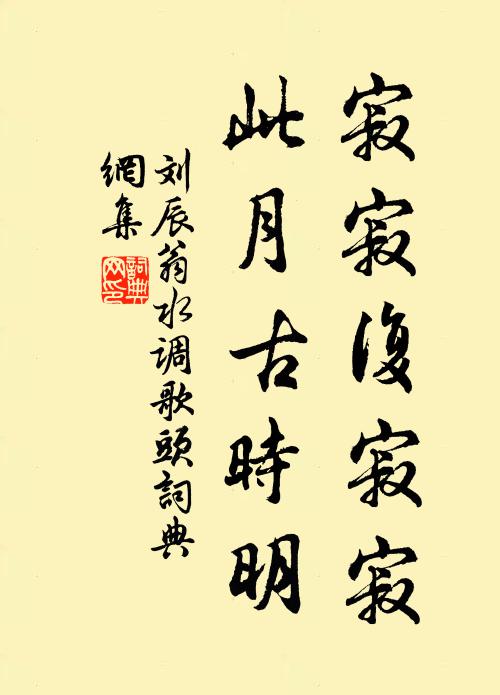 寂寂復寂寂
此月古時明
刘辰翁水调歌頭詞典
網集
詞典
网印